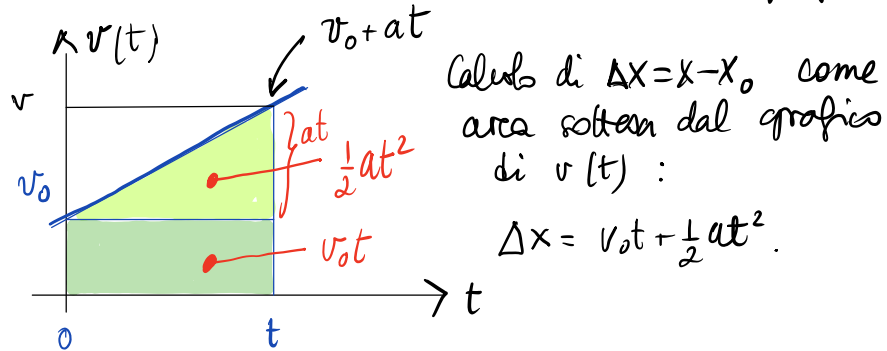 v(t)
v₀+at
v
at
½at²
v₀
v₀t
t
0
t
Calcolo di Δx=x-x₀ come
area sottesa dal grafico
di v(t) :
Δx = v₀t+½at².